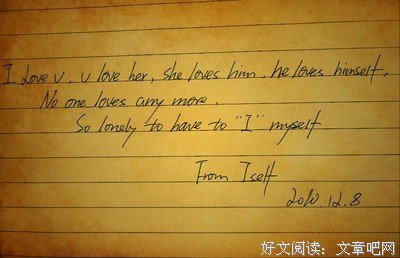 I Love U, U love her, she loves him, he loves himself,
No one loves any more.
So lonely to have to "I" myself
From Iself
2010.12.8
好文阅读：文章吧网